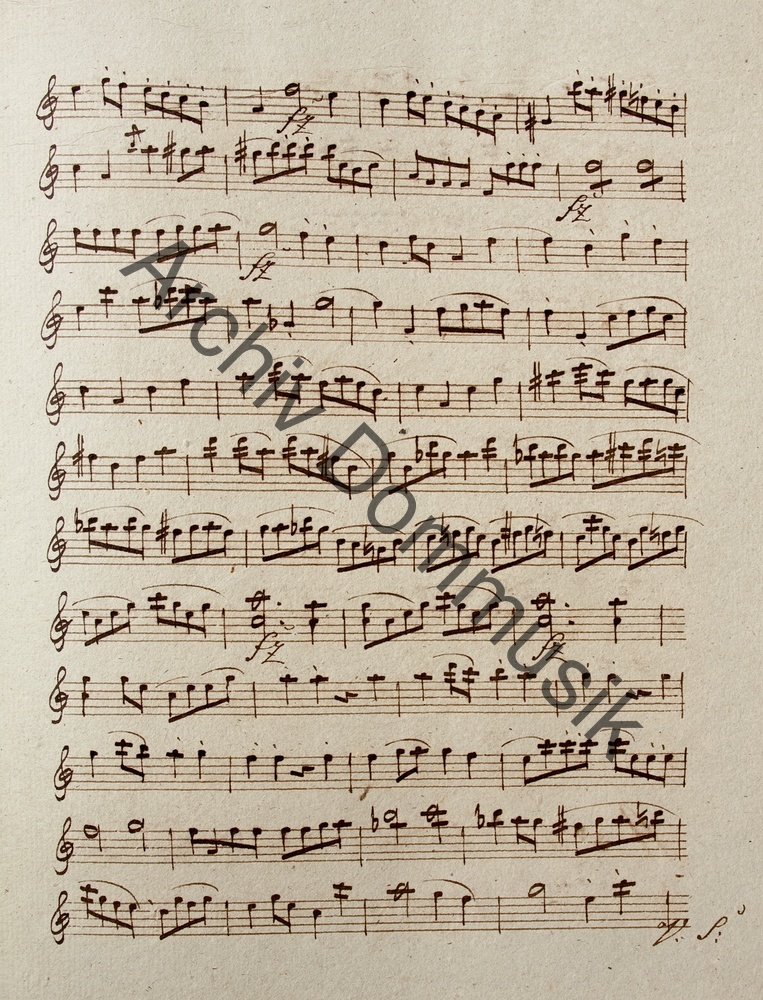 fz
fz
fz
Archiv Dommusik
fz
fz
V. S.